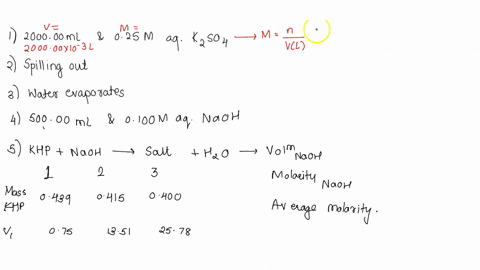 V= M=
1) 2000.00 mL & 0.25 M aq. K2SO4 → M = n / V(L)
2000.00x10-3 L
2) Spilling out
3) Water evaporates
4) 500.00 mL & 0.100 M aq. NaOH
5) KHP + NaOH → Salt + H2O → Volm NaOH
1 2 3 Molarity NaOH
Mass KHP 0.439 0.415 0.400 Average molarity.
Vi 0.75 13.51 25.78